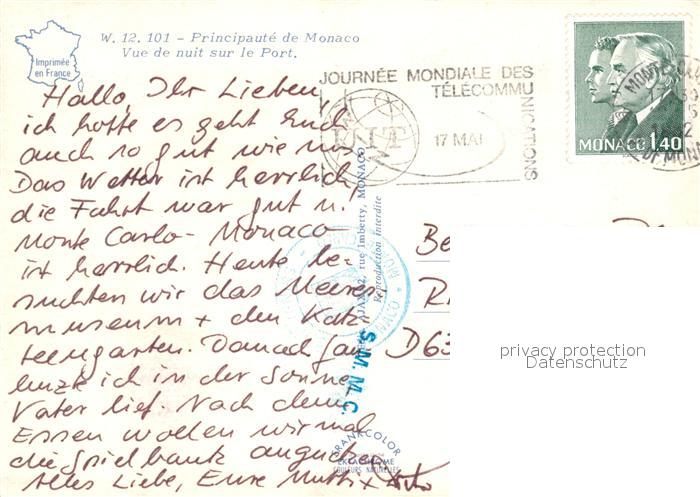 W. 12. 101 – Principauté de Monaco
Vue de nuit sur le Port.
Imprimée
en France
JOURNÉE MONDIALE DES
TÉLÉCOMMUNICATIONS
UIT
17 MAI
MONACO 1,40
Hallo, Ihr Lieben,
ich hoffe es geht Euch
auch so gut wie uns
Das Wetter ist herrlich
die Fahrt war gut u.
Monte Carlo - Monaco
ist herrlich. Heute be-
suchten wir das Meeres-
museum + den Kak-
teengarten. Danach faul
lenzte ich in der Sonne
Vater lief. Nach dem
Essen wollen wir mal
die Spielbank angucken
Alles Liebe, Eure Mutti +
rue Imberty, MONACO
Reproduction Interdite
S.M.M.C.
Be
R
D 63
privacy protection
Datenschutz
KRANKCOLOR
EKTACHROME
COULEURS NATURELLES